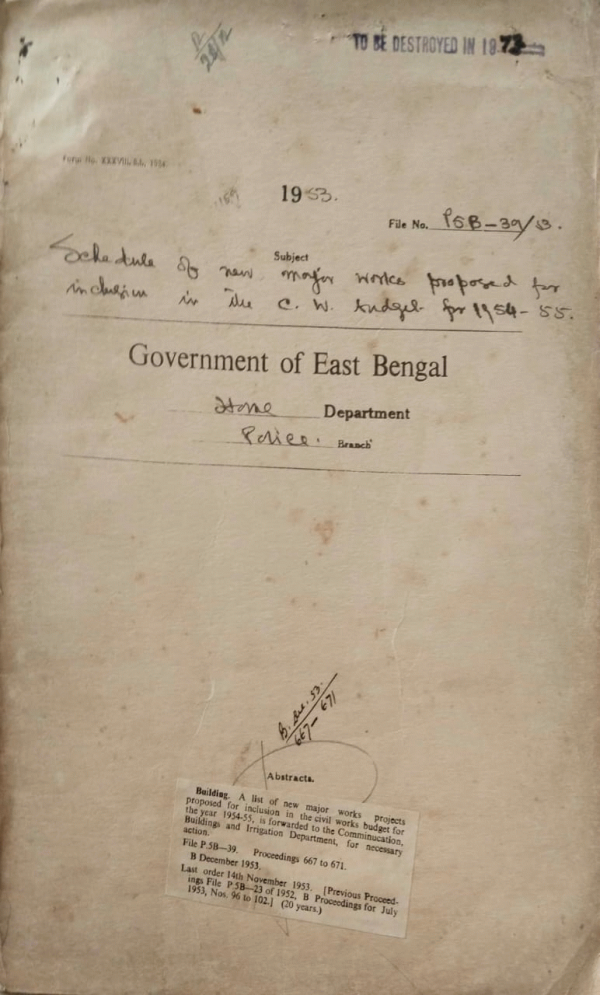 TO BE DESTROYED IN 1973
Form No. XXXVIII
1953.
File No. P5B-39/53.
Subject
Schedule of new major works proposed for
inclusion in the C. W. budget for 1954-55.
Government of East Bengal
Home Department
Police. Branch
B. Dec. 53.
667-671
Abstracts.
Building. A list of new major works projects
proposed for inclusion in the civil works budget for
the year 1954-55, is forwarded to the Comminucation,
Buildings and Irrigation Department, for necessary
action.
File P.5B—39. Proceedings 667 to 671.
B December 1953.
Last order 14th November 1953. [Previous Proceed-
ings File P.5B—23 of 1952, B Proceedings for July
1953, Nos. 96 to 102.] (20 years.)